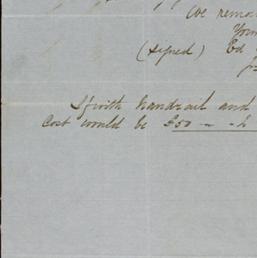 We rema
You
(signed) Ed
If with handrail and
Cost would be £50 - -